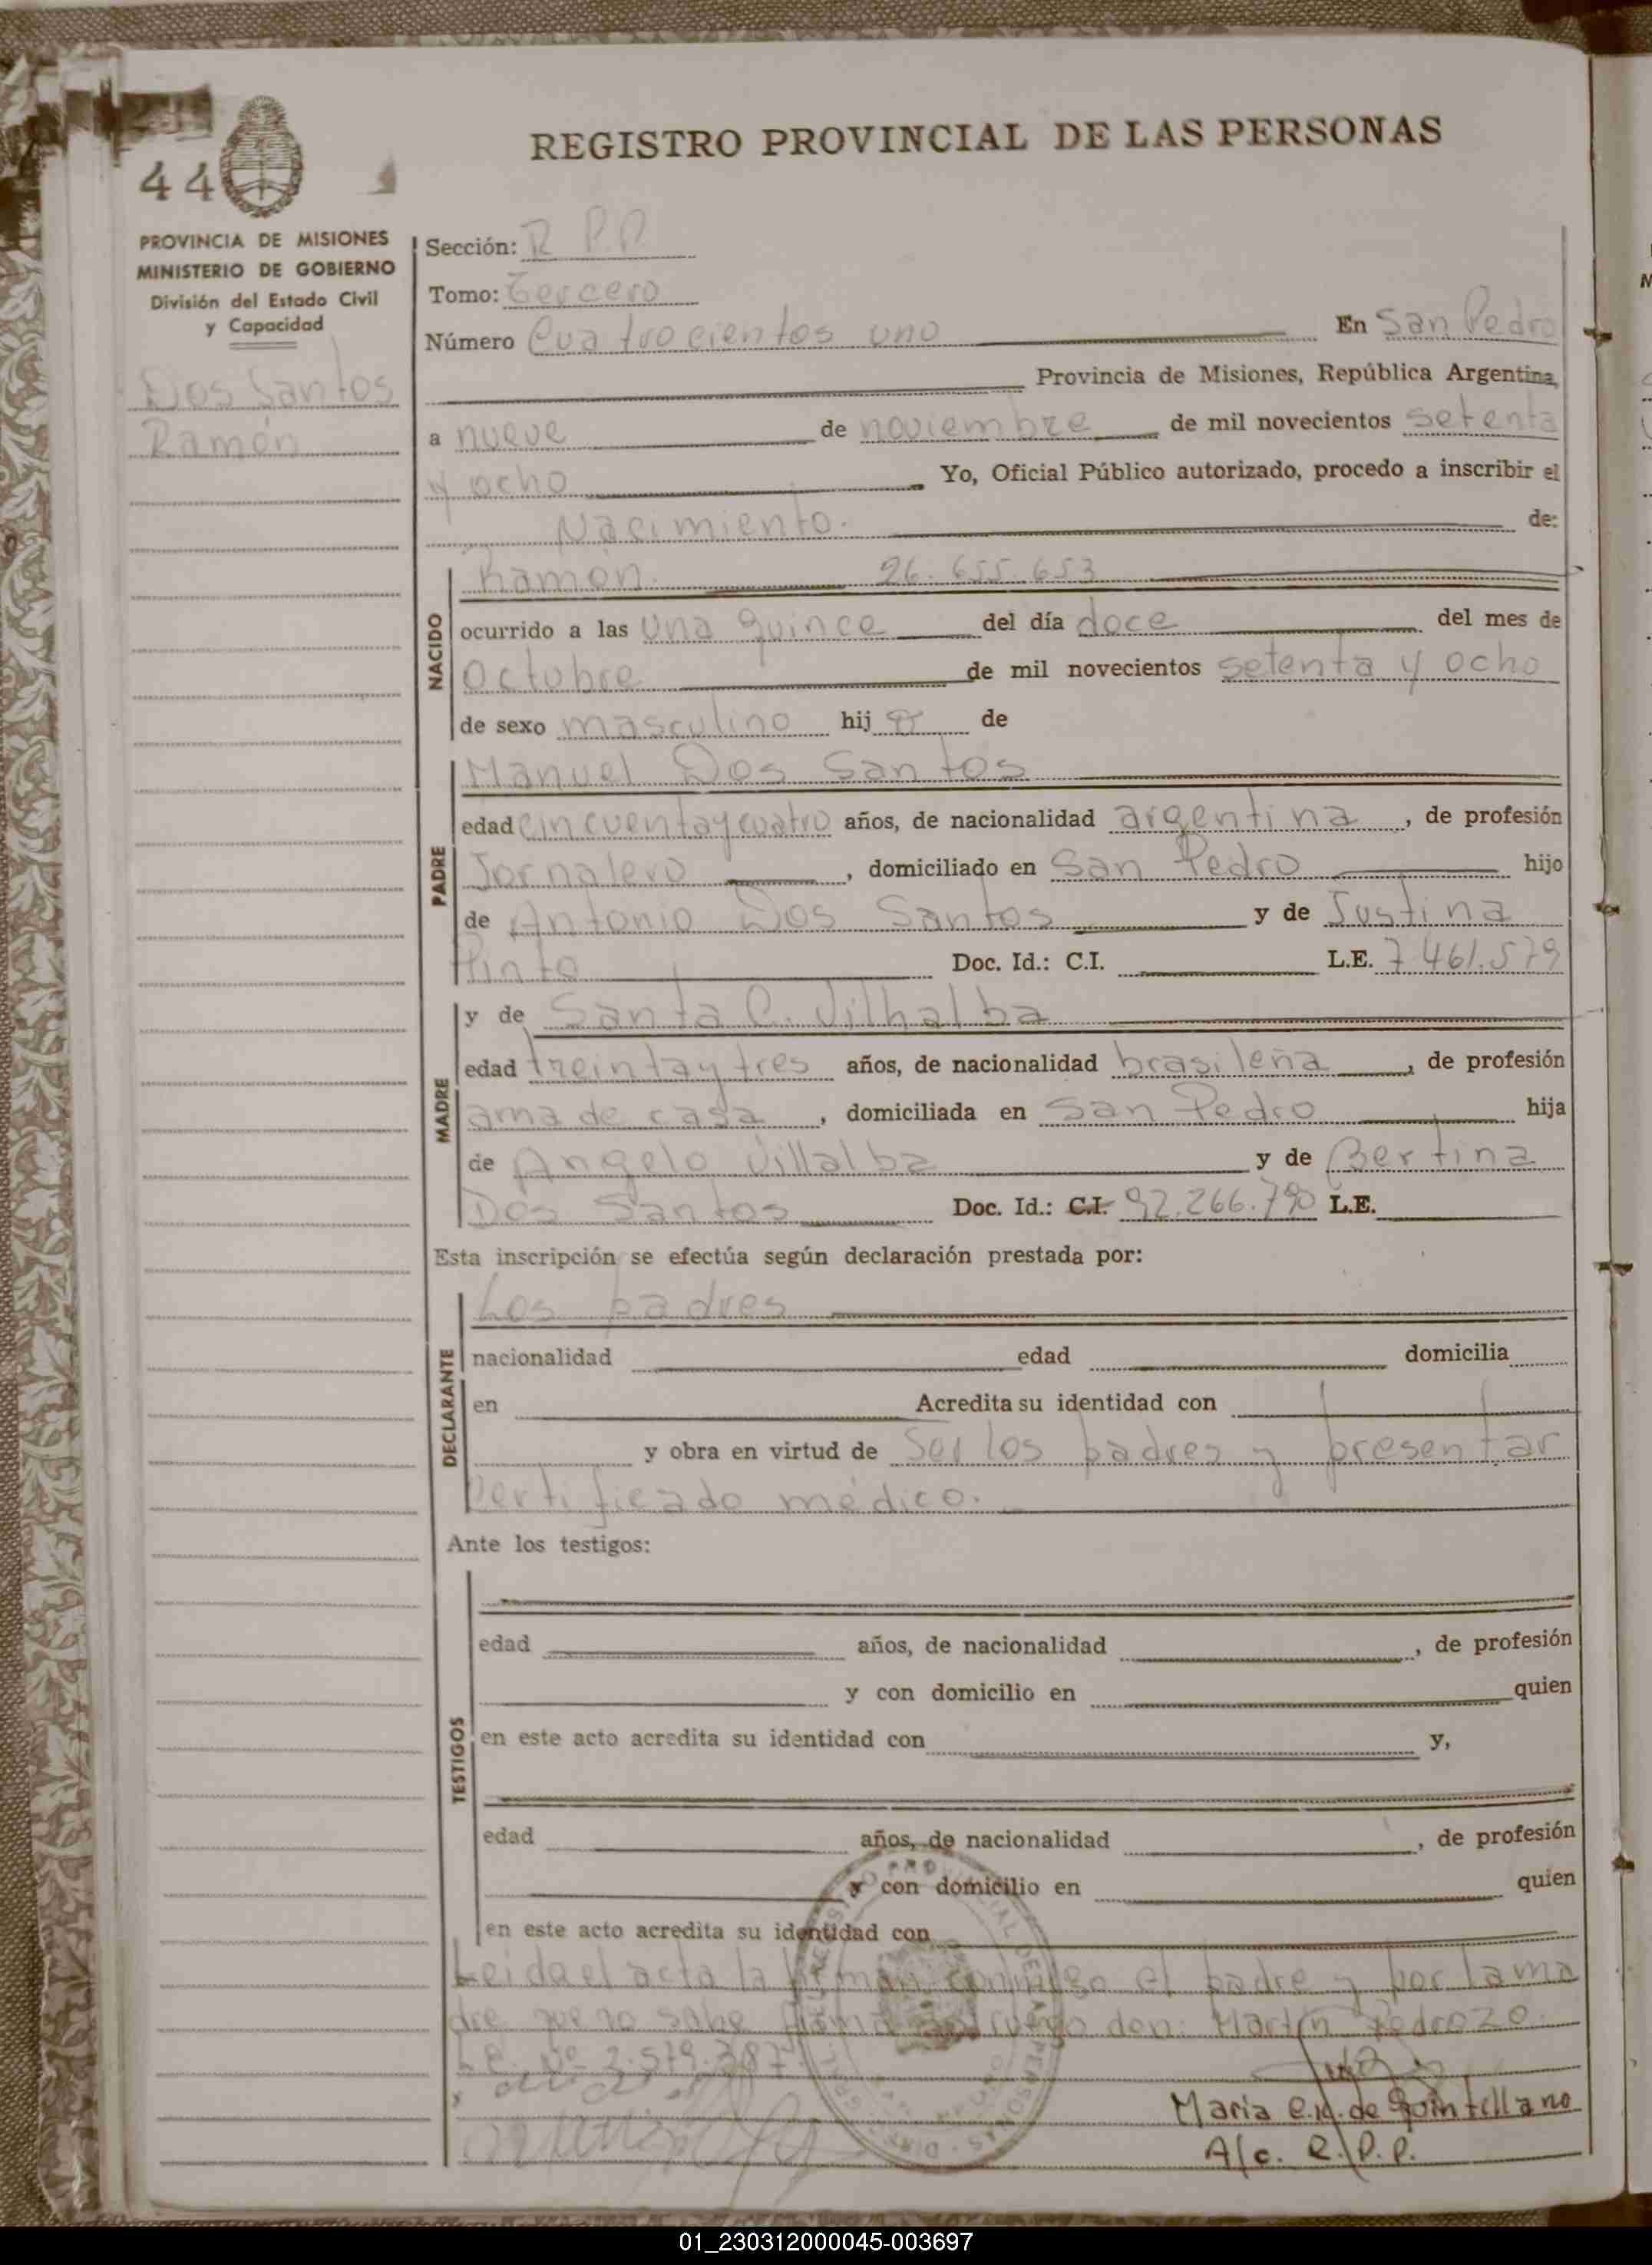 REGISTRO PROVINCIAL DE LAS PERSONAS
44
PROVINCIA DE MISIONES
MINISTERIO DE GOBIERNO
División del Estado Civil
y Capacidad
Dos Santos
Ramón
Sección: R P P
Tomo: Tercero
Número Cuatrocientos uno En San Pedro
Provincia de Misiones, República Argentina,
a nueve de noviembre de mil novecientos setenta
y ocho Yo, Oficial Público autorizado, procedo a inscribir el
Nacimiento. de:
NACIDO
Ramón. 26.655.653
ocurrido a las una quince del día doce del mes de
Octubre de mil novecientos setenta y ocho
de sexo masculino hij o de
PADRE
Manuel Dos Santos
edad cincuentaycuatro años, de nacionalidad argentina, de profesión
Jornalero, domiciliado en San Pedro hijo
de Antonio Dos Santos y de Justina
Pinto Doc. Id.: C.I. L.E. 7461.579
MADRE
y de Santa C. Vilhalba
edad treintaytres años, de nacionalidad brasileña, de profesión
ama de casa, domiciliada en San Pedro hija
de Angelo Villalba y de Bertina
Dos Santos Doc. Id.: C.I. 92.266.790 L.E.
Esta inscripción se efectúa según declaración prestada por:
DECLARANTE
Los padres
nacionalidad edad domicilia
en Acredita su identidad con
y obra en virtud de Ser los padres y presentar
Certificado médico.
Ante los testigos:
TESTIGOS
edad años, de nacionalidad, de profesión
y con domicilio en quien
en este acto acredita su identidad con y,
edad años, de nacionalidad, de profesión
y con domicilio en quien
en este acto acredita su identidad con
Leida el acta la firman conmigo el padre y por la ma
dre que no sabe firmar ruego don: Martín Pedrozo.
L.E. Nº 2.579.387
Maria e.K. de Quintillano
A/c. R.P.P.
01_230312000045-003697